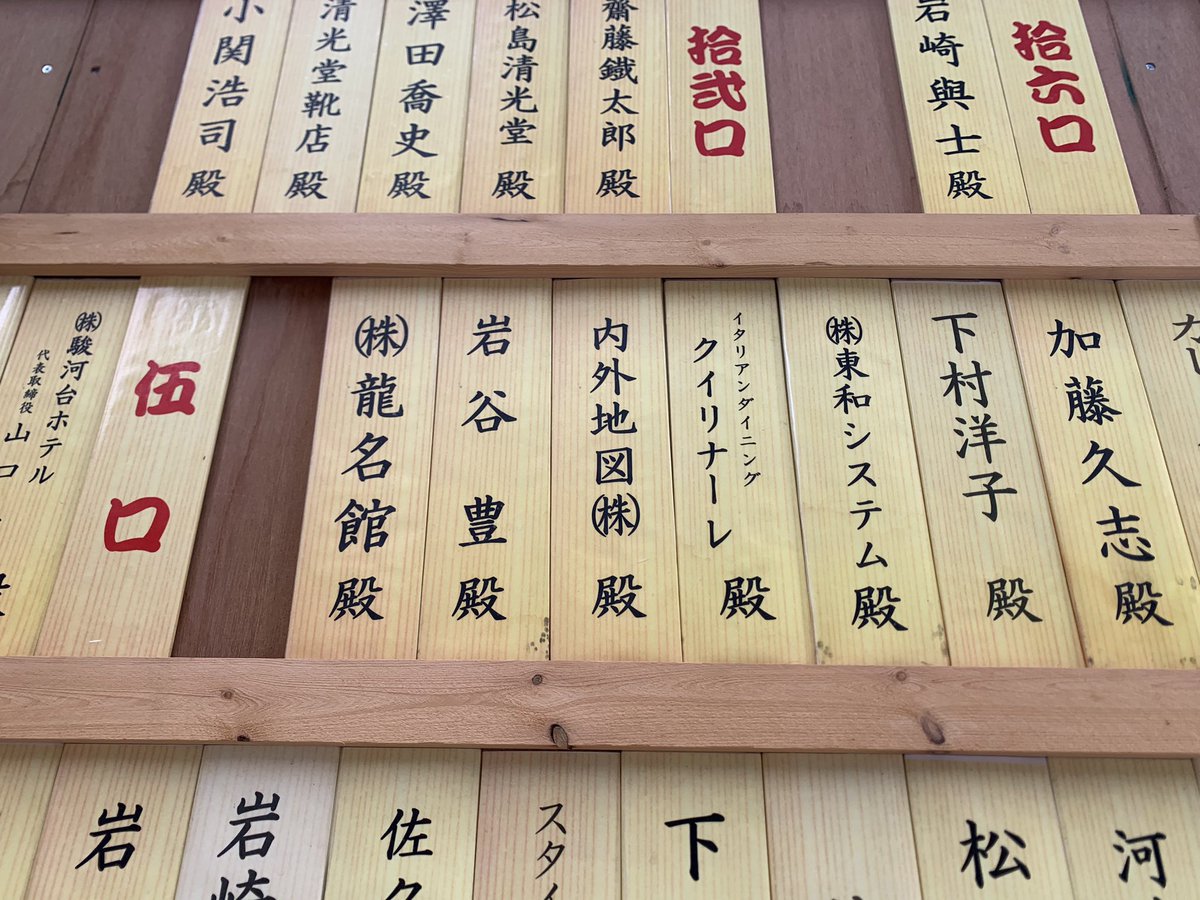 拾六口
岩崎與士殿
拾弐口
齋藤鐵太郎殿
松島清光堂殿
澤田喬史殿
清光堂靴店殿
小関浩司殿
加藤久志殿
下村洋子殿
㈱東和システム殿
イタリアンダイニング
クイリナーレ殿
内外地図㈱殿
岩谷豊殿
㈱龍名館殿
伍口
㈱駿河台ホテル
代表取締役 山口
河
松
下
スタイ
佐久
岩崎
岩